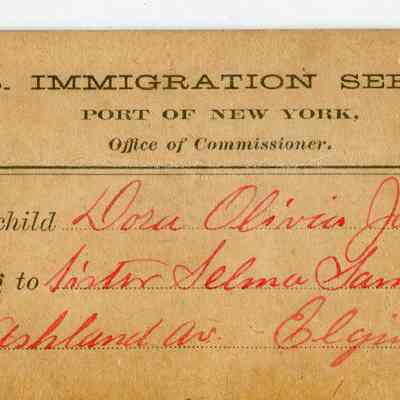 S. IMMIGRATION SER
PORT OF NEW YORK,
Office of Commissioner.
child Dora Olivia Jo
s to Sister Selma Sam
Ashland Av. Elgin